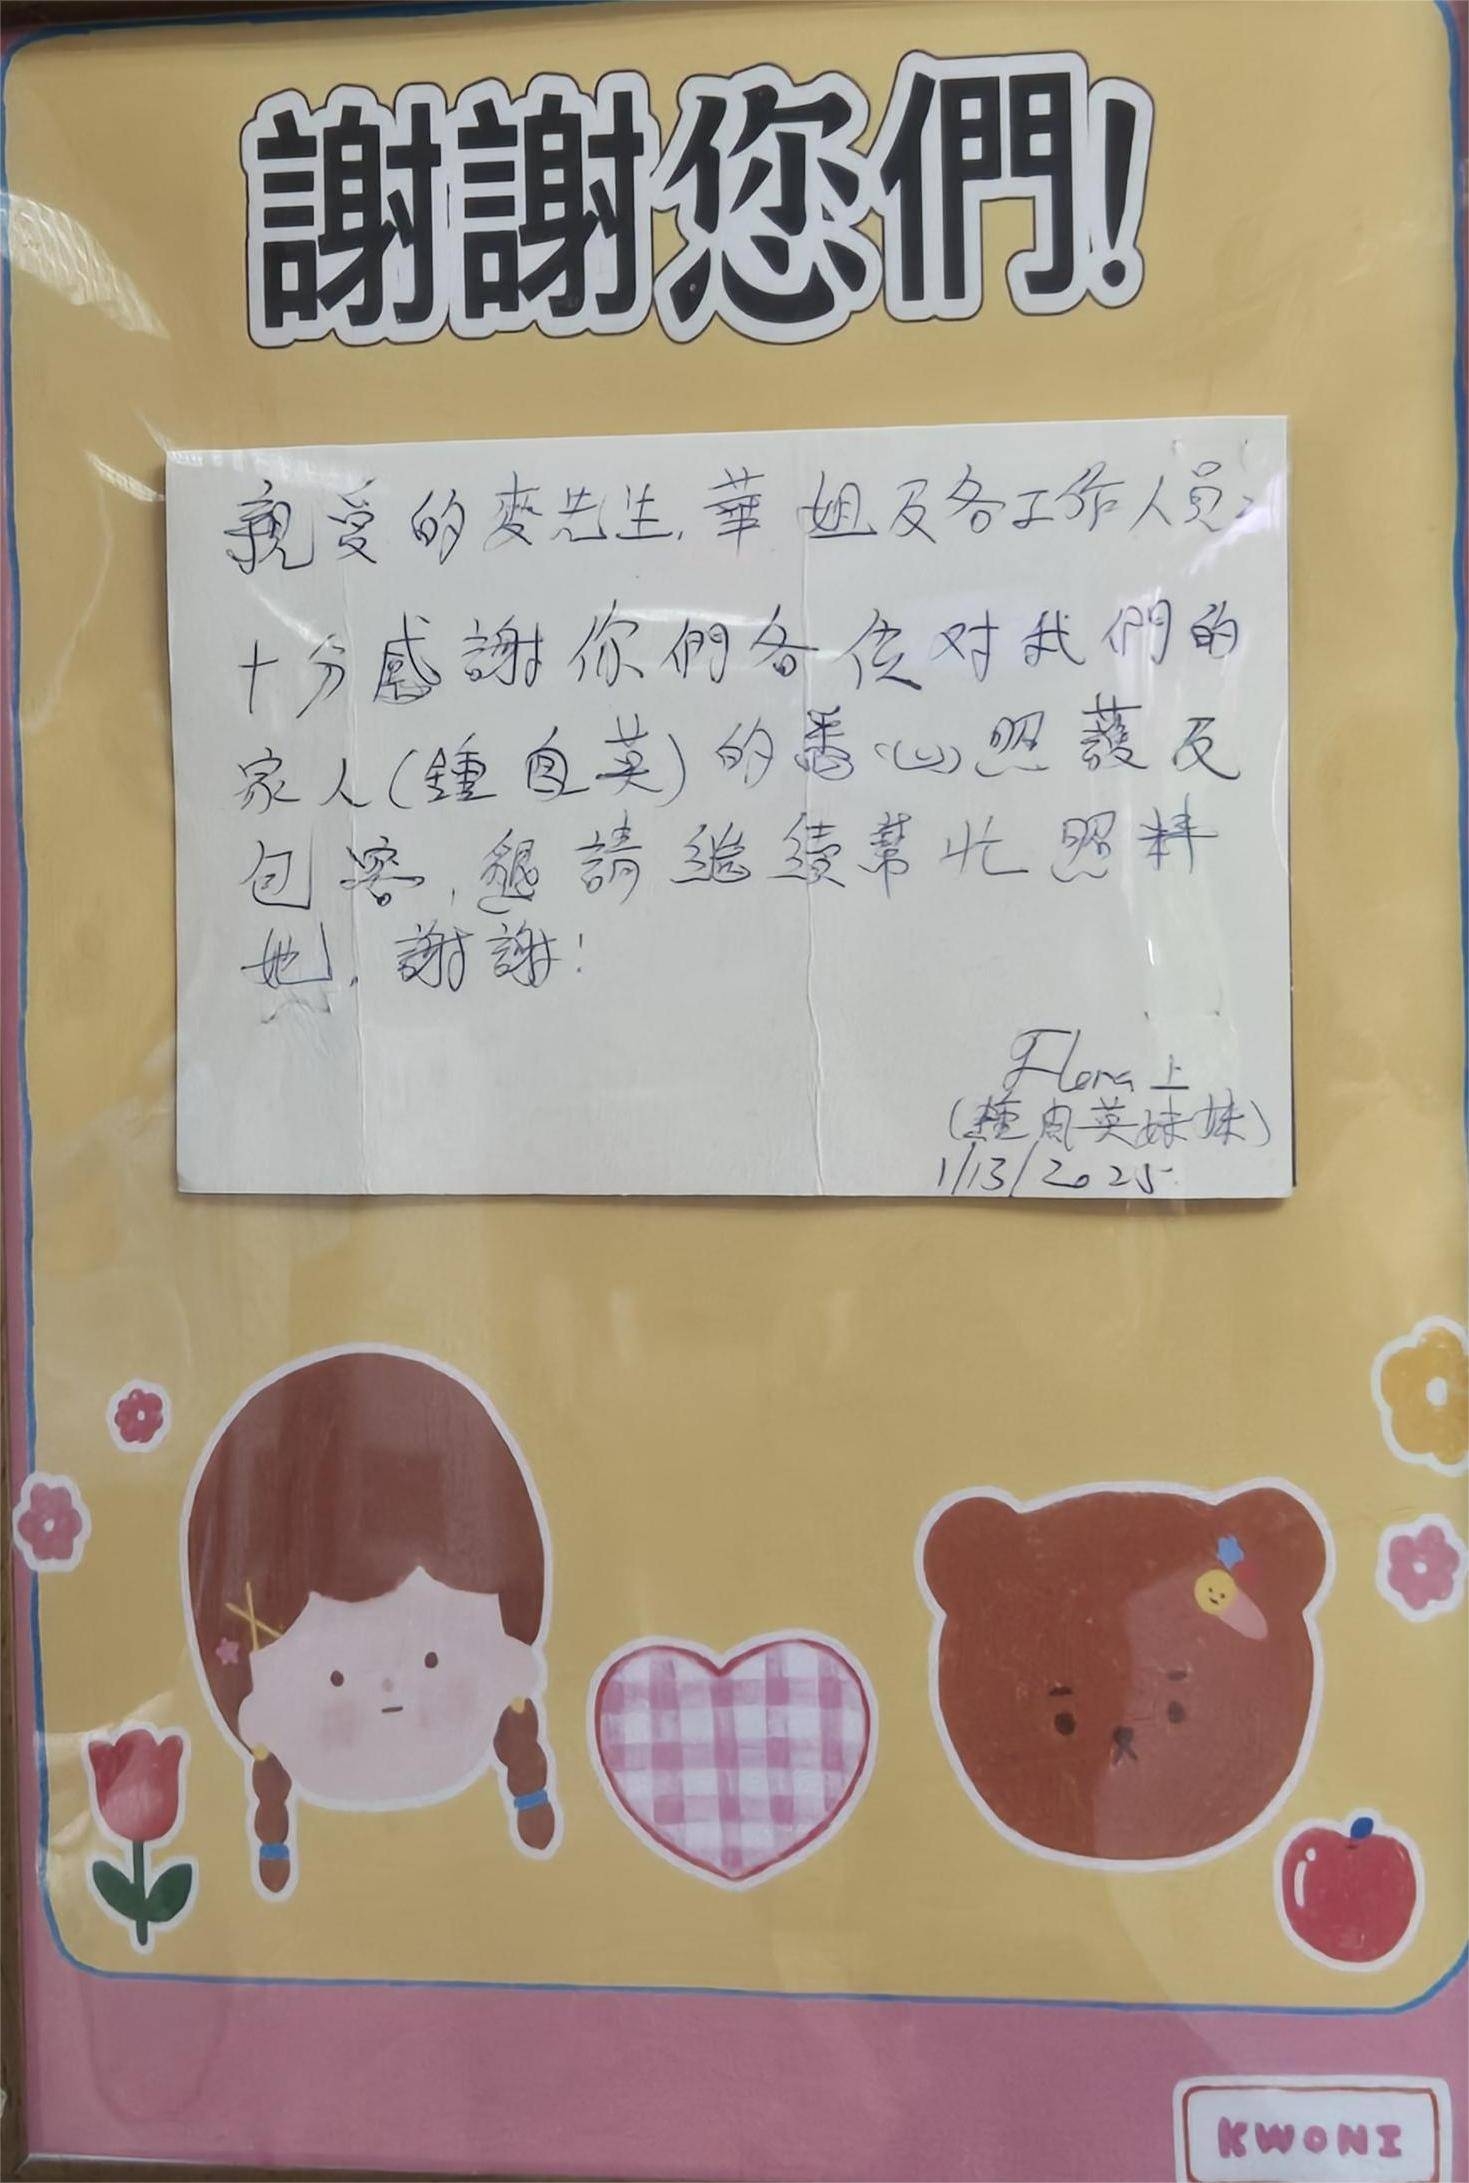 謝謝您們!
親愛的麥先生,華姐及各工作人員:
十分感謝你們各位对我們的
家人(鍾自英)的悉心照護及
包容,懇請继續幫忙照料
她,謝謝!
Flora上
(鍾自英妹妹)
1/13/2025
KWONI